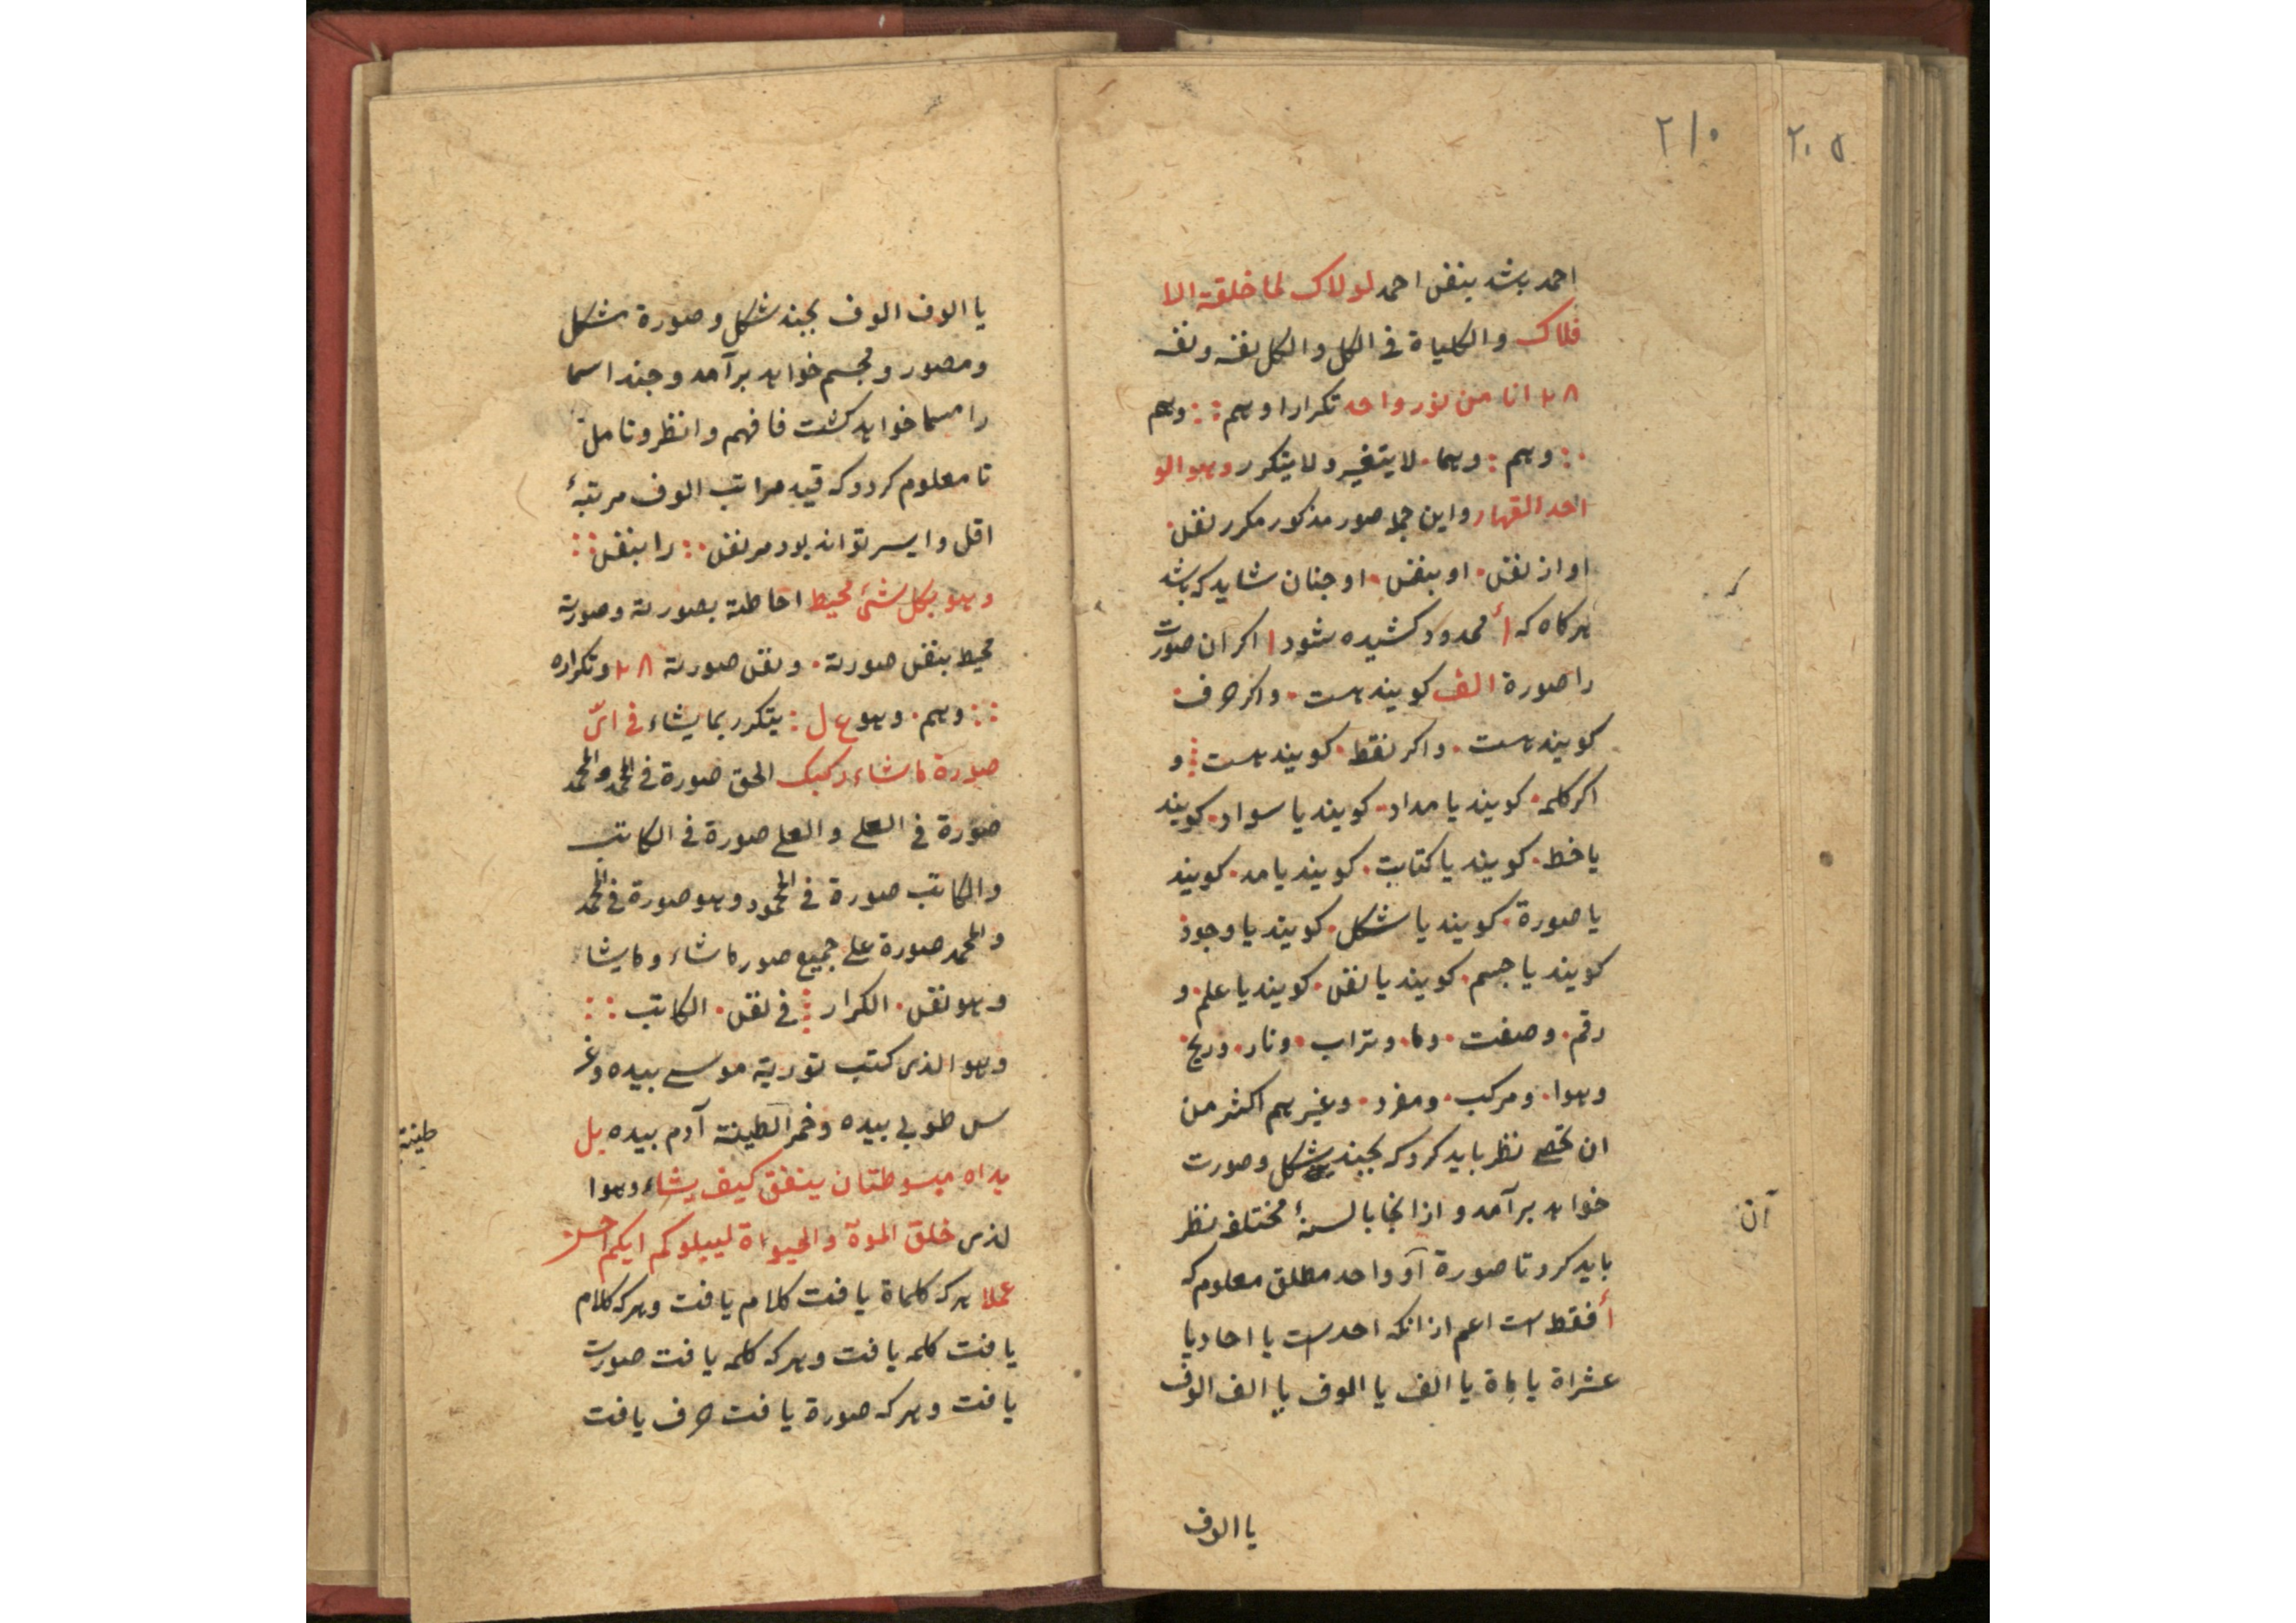 ۲۱۰
۲۰۵
احمد باشد بنقل احمد لولاک لما خلقة الا
فلاک والکلیاة فی الکل والکل نفسه ونفسه
انا من نور واحد تکرارا وهم :: وهم
∴ وهم : وهما · لا یتغیر ولا یتکرر وهو الو
احد القهار واین جمله صور مذکور مکرر نقل ·
او از نقل · او بنقل · او جنان شاید که باشد
هرکاه که أ ممدود کشیده شود ا اکر ان صورت
را صورة الف کویند هست · واکر حرف ·
کویند هست · واکر نقط · کویند هست ⁝ و
اکر کلمه · کویند یا مداد · کویند یا سواد · کویند
یا خط · کویند یا کتابت · کویند یا مد · کویند
یا صورة · کویند یا شکل · کویند یا وجود
کویند یا جسم · کویند یا نقل · کویند یا علم · و
رقم · وصفت · وما · وتراب · ونار · وریح ·
وهوا · ومرکب · ومفرد · وغیرهم اکثر من
ان تحصی نظر باید کرد که بجند شکل وصورت
خواهد برآمد و از انجا بالسنهٔ مختلفه نظر
باید کرد تا صورة آو واحد مطلق معلوم که
أ فقط است اعم از انکه احد است یا احاد یا
عشراة یا ماة یا الف یا الوف یا الف الوف
یا الوف
آن
یا الوف الوف بجند شکل وصورة شکل
ومصور ومجسم خواهد برآمد وجند اسما
را مسما خواهد کشت فافهم وانظر وتامل
تا معلوم کردد که قید مراتب الوف مرتبهٔ
اقل وایسر تواند بود مر نقل ∴ را بنقل ::
وهو بکل شئ محیط احاطته بصورته وصورته
محیط بنقل صورته · ونقل صورته وتکراره
:: وهم · وهو ع ل : یتکرر بما یشاء فی ایّ
صورة ما شاء رکبک الحق صورة فی المحمد والمحمد
صورة فی العلی والعلی صورة فی الکاتب
والکاتب صورة فی المحمود وهو صورة فی المحمد
والمحمد صورة علی جمیع صور ما شاء وما یشاء
وهو نقل · الکرار ⁝ فی نقل · الکاتب ::
وهو الذی کتب توریة موسی بیده وغر
س طوبی بیده وخمر الطینة آدم بیده بل
یداه مبسوطتان ینفق کیف یشاء وهو ا
لذی خلق الموة والحیواة لیبلوکم ایکم احسن
عملا هرکه کلماة یافت کلام یافت وهرکه کلام
یافت کلمه یافت وهرکه کلمه یافت صورت
یافت وهرکه صورة یافت حرف یافت
طینة